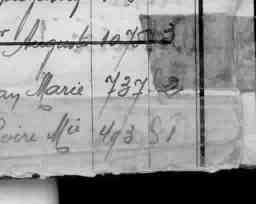 Auguste 1075 3
Marie 737 2
oire Mie 493 S P